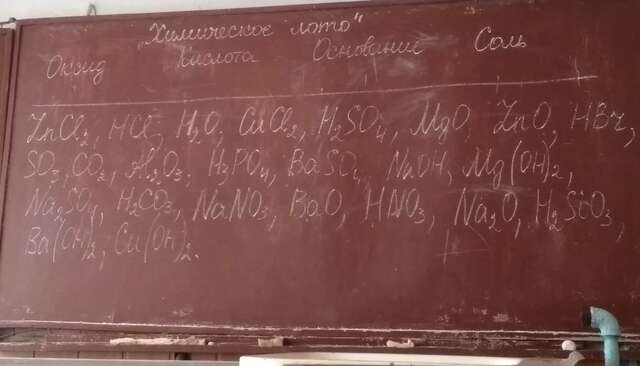 "Химическое лото"
Оксид Кислота Основание Соль
ZnCl₂, HCl, H₂O, CuCl₂, H₂SO₄, MgO, ZnO, HBr,
SO₃, CO₂, Al₂O₃, H₃PO₄, BaSO₄, NaOH, Mg(OH)₂,
Na₂SO₄, H₂CO₃, NaNO₃, BaO, HNO₃, Na₂O, H₂SiO₃,
Ba(OH)₂, Cu(OH)₂.